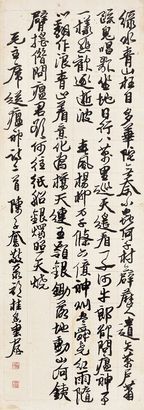 緑水青山枉自多華佗無奈小蟲何千村薜荔人遺矢萬户蕭
疏鬼唱歌坐地日行八萬里巡天遥看一千河牛郎欲問瘟神事
一樣悲歡逐逝波春風楊柳万千條六億神州盡舜堯紅雨隨
心翻作浪青山着意化為橋天連五嶺銀鋤落地動山河鐵
臂摇借問瘟君欲何往紙船銀燭照天燒
毛主席送瘟神詩二首陳子奮敬录於桂寓居